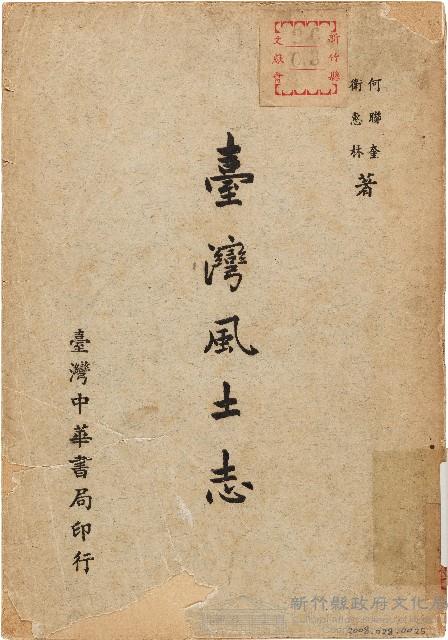 新竹縣
文獻會
何聯奎
衛惠林
著
臺灣風土志
臺灣中華書局印行
新竹縣政府文化局
2008.029.0025